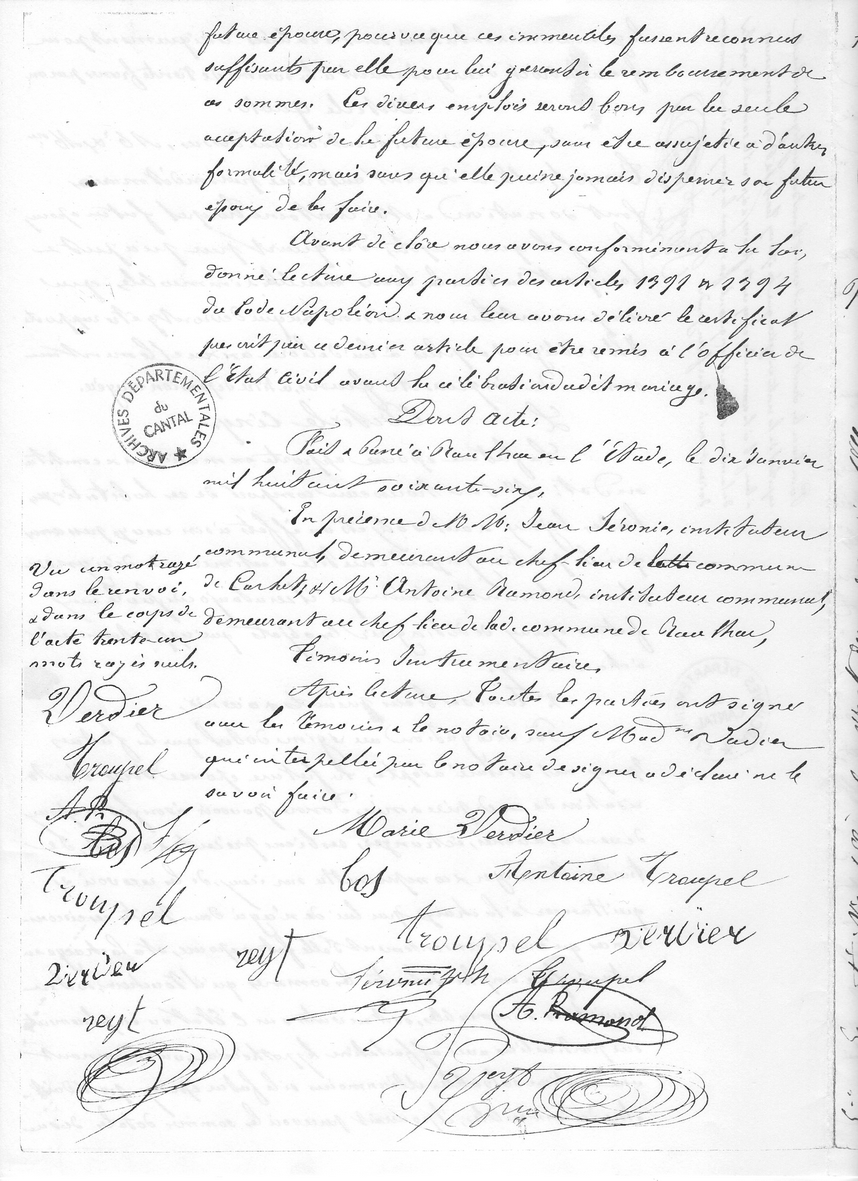 future épouse, pourvu que ces immeubles fussent reconnus
suffisants par elle pour lui garantir le remboursement de
ces sommes. Ces divers emplois seront bons par la seule
acceptation de la future épouse, sans être assujetie à d'autre
formalité, mais sans qu'elle puisse jamais dispenser son futur
époux de la faire.
Avant de clore nous avons conformément à la loi,
donné lecture aux parties des articles 1391 & 1394
du Code Napoléon & nous leur avons délivré le certificat
prescrit par ce dernier article pour être remis à l'officier de
l'Etat Civil avant la célébration dudit mariage.
ARCHIVES DÉPARTEMENTALES
du
CANTAL
Dont acte:
Fait & passé à Raulhac en l'Etude, le dix Janvier
mil huit cent soixante-six,
En présence de M M: Jean Féronie, instituteur
communal, demeurant au chef-lieu de commune
de Carlat, & Mr Antoine Ramond, instituteur communal,
demeurant au chef-lieu de lad. commune de Raulhac,
Témoins Instrumentaires,
Après lecture Toutes les parties ont signer
avec les témoins & le notaire, sauf Mad me Verdier
qui interpellée par le notaire de signer a déclaré ne le
savoir faire.
Vu un mot rayé
dans le renvoi,
& dans le corps de
l'acte trente un
mots rayés nuls.
Verdier
Troupel
A. R.
bos
Troupel
verdier
reyt
Marie Verdier
bos
Antoine Troupel
troupel
verdier
reyt
Troupel
A. Ramond
reyt